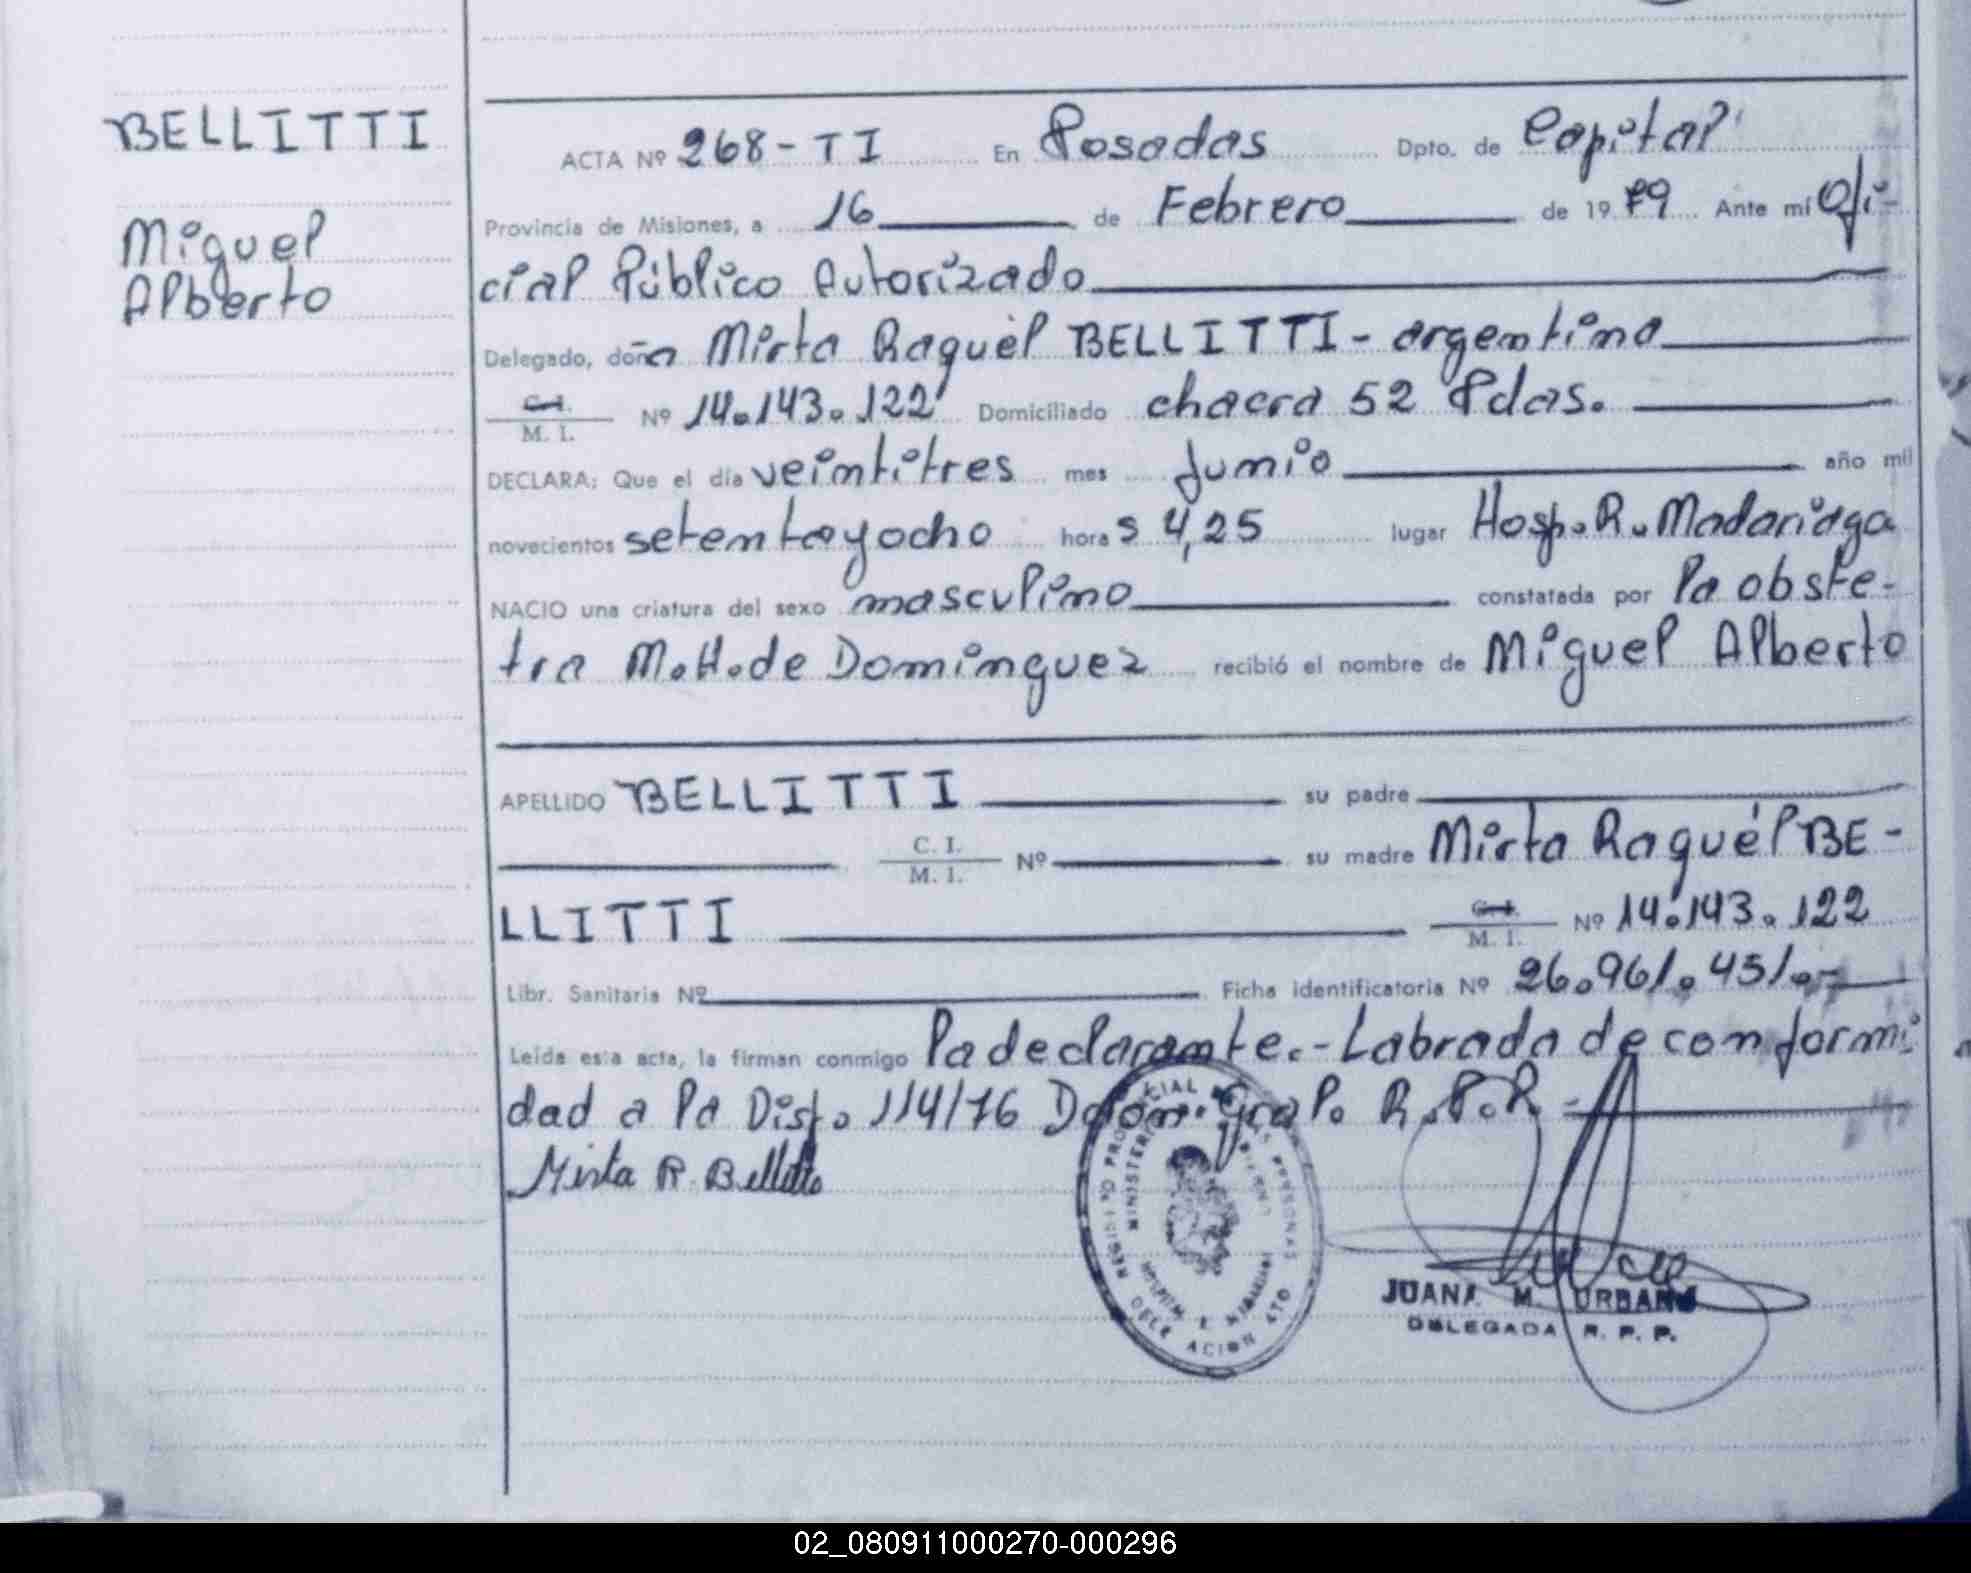 BELLITTI
Miguel
Alberto
ACTA Nº 268-TI En Posadas Dpto. de Capital
Provincia de Misiones, a 16 de Febrero de 1979 Ante mí Ofi-
cial Público Autorizado
Delegado, doña Mirta Raquél BELLITTI - argentina
C. I.
M. I. Nº 14.143.122 Domiciliado chacra 52 Pdas.
DECLARA: Que el día veintitres mes Junio año mil
novecientos setentayocho horas 4,25 lugar Hosp. R. Madariaga
NACIO una criatura del sexo masculino constatada por la obste-
tra M.H. de Dominguez recibió el nombre de Miguel Alberto
APELLIDO BELLITTI su padre
C. I.
M. I. Nº su madre Mirta Raquél BE-
LLITTI C. I.
M. I. Nº 14.143.122
Libr. Sanitaria Nº Ficha identificatoria Nº 26.961.451.-
Leída esta acta, la firman conmigo la declarante.- Labrada de conformi
dad a la Disp. 114/76 Gral. R.P.P. -
Mirta R. Bellitti
JUANA M. URBANO
DELEGADA R. P. P.
02_080911000270-000296